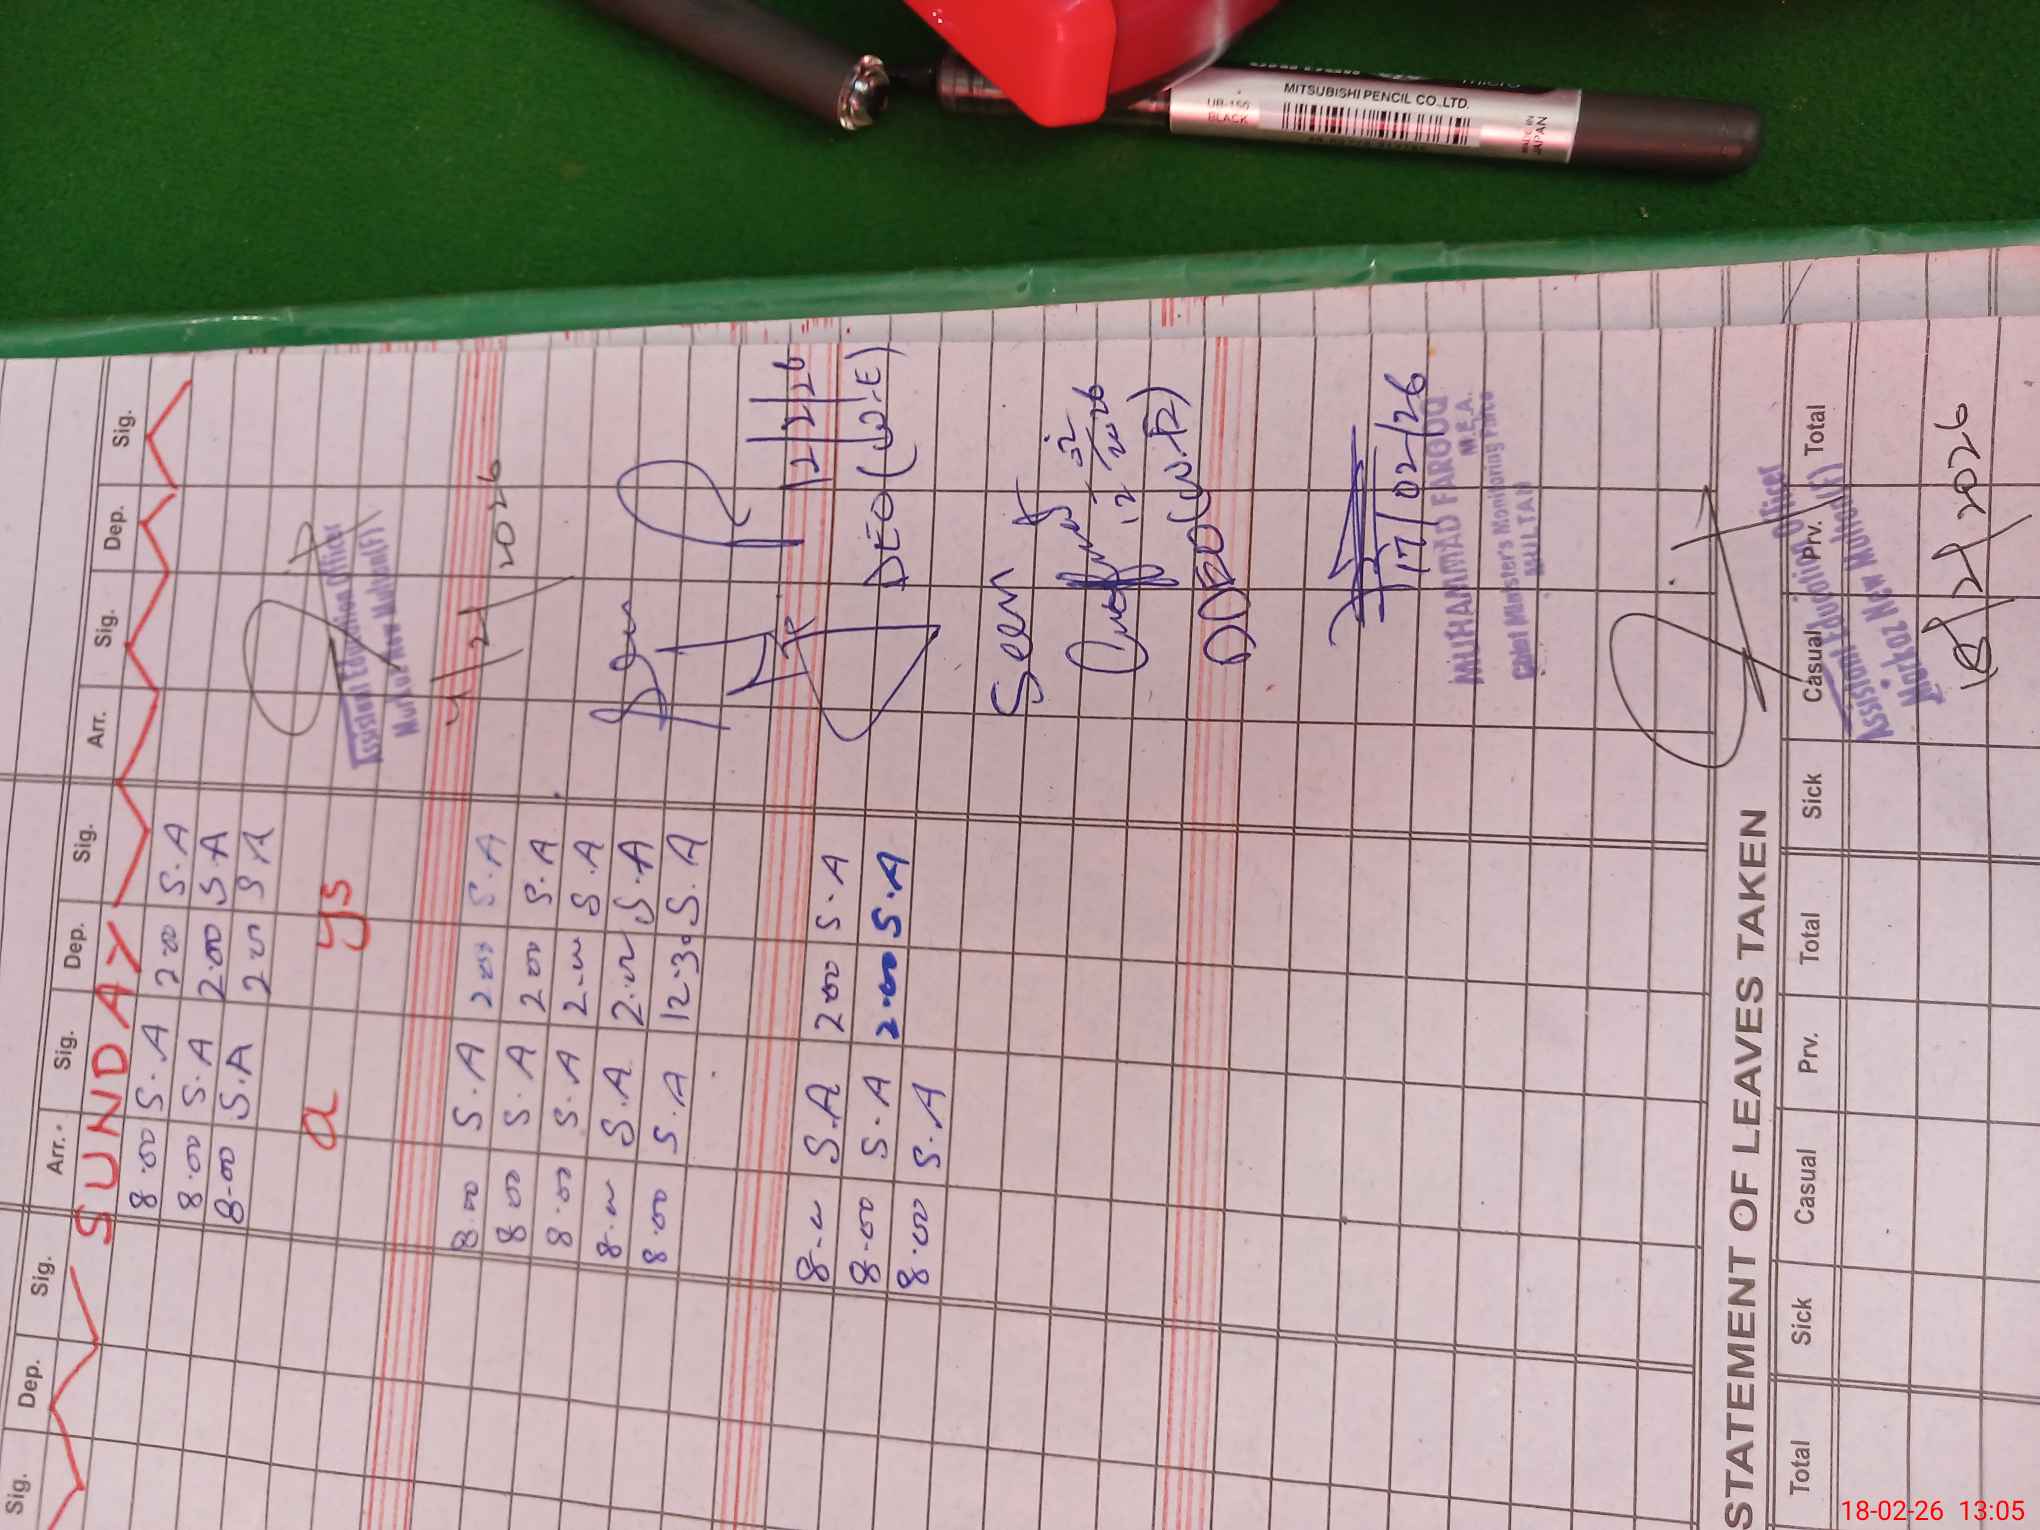 MITSUBISHI PENCIL CO.,LTD.
UB-155
BLACK
MADE IN
JAPAN
Sig. Dep. Sig. Arr. Sig. Dep. Sig. Arr. Sig. Dep. Sig.
SUNDAY
8.00 S.A 2.00 S.A
8.00 S.A 2.00 S.A
8.00 S.A 2.00 S.A
Assistant Education Officer
Markaz New Multan(F)
a ys
4/2/2026
8.00 S.A 2.00 S.A
8.00 S.A 2.00 S.A
8.00 S.A 2.00 S.A
8.00 S.A 2.00 S.A
8.00 S.A 12.30 S.A
12/2/26
DEO (W.E)
8.00 S.A 2.00 S.A
8.00 S.A 2.00 S.A
8.00 S.A
Seen
12/02/2026
DDEO(W.R)
17/02/26
MUHAMMAD FAROOQ
M.E.A.
Chief Minister's Monitoring Force
MULTAN
STATEMENT OF LEAVES TAKEN
Total Sick Casual Prv. Total Sick Casual Prv. Total
Assistant Education Officer
Markaz New Multan(F)
18/2/2026
18-02-26 13:05